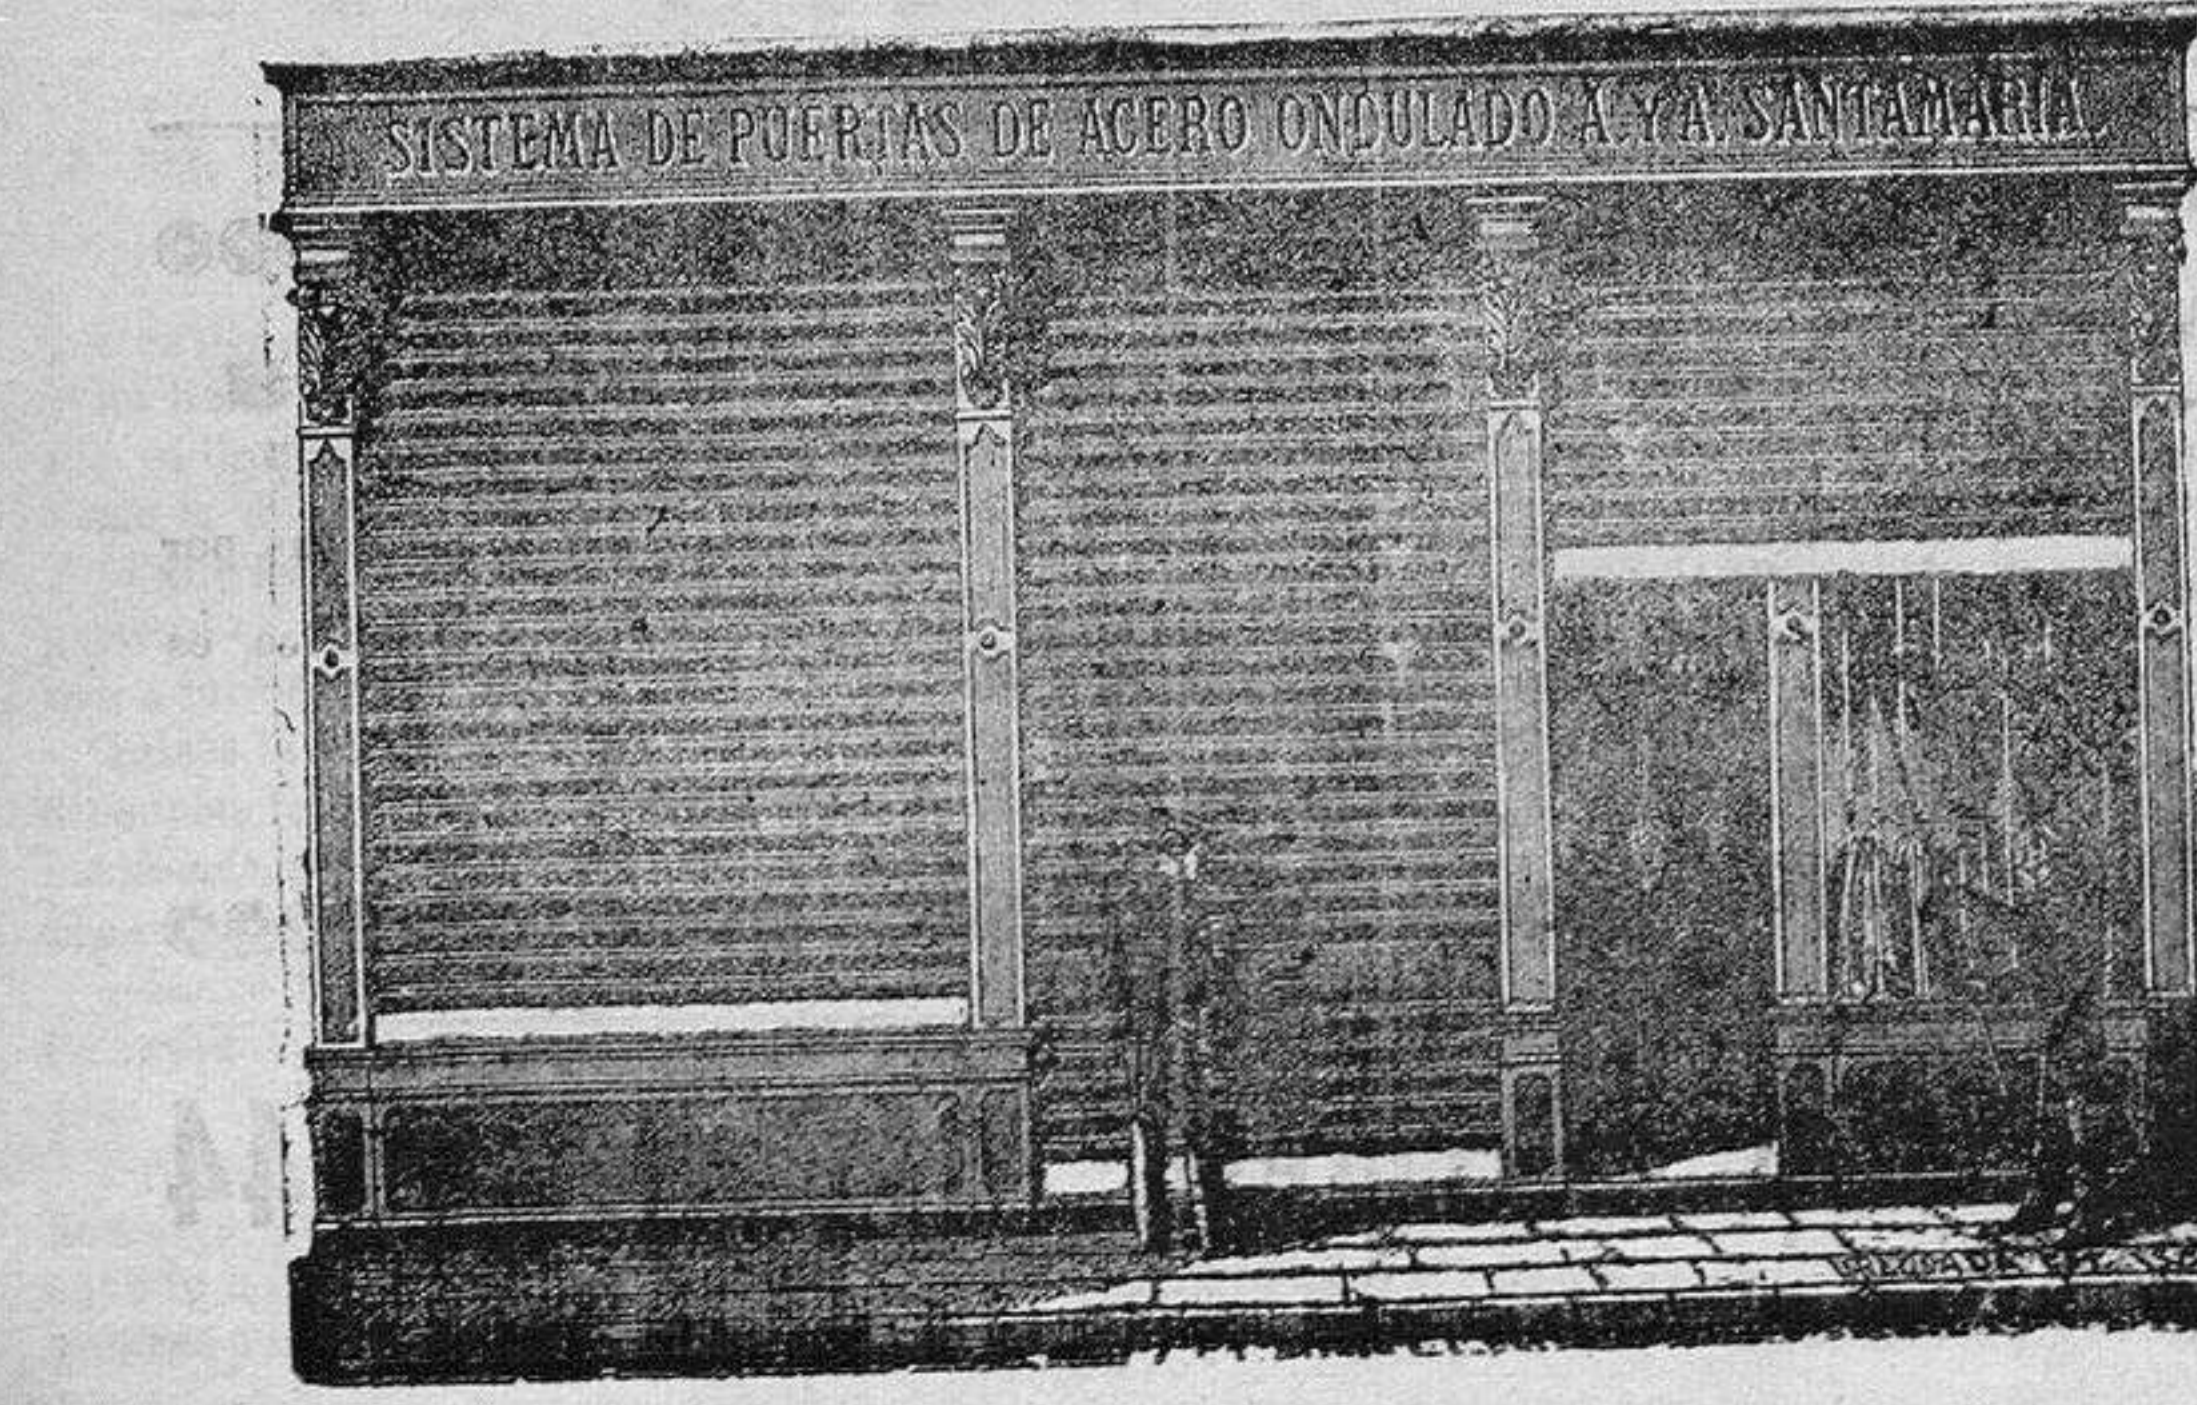 SISTEMA DE PUERTAS DE ACERO ONDULADO A. Y A. SANTAMARIA.